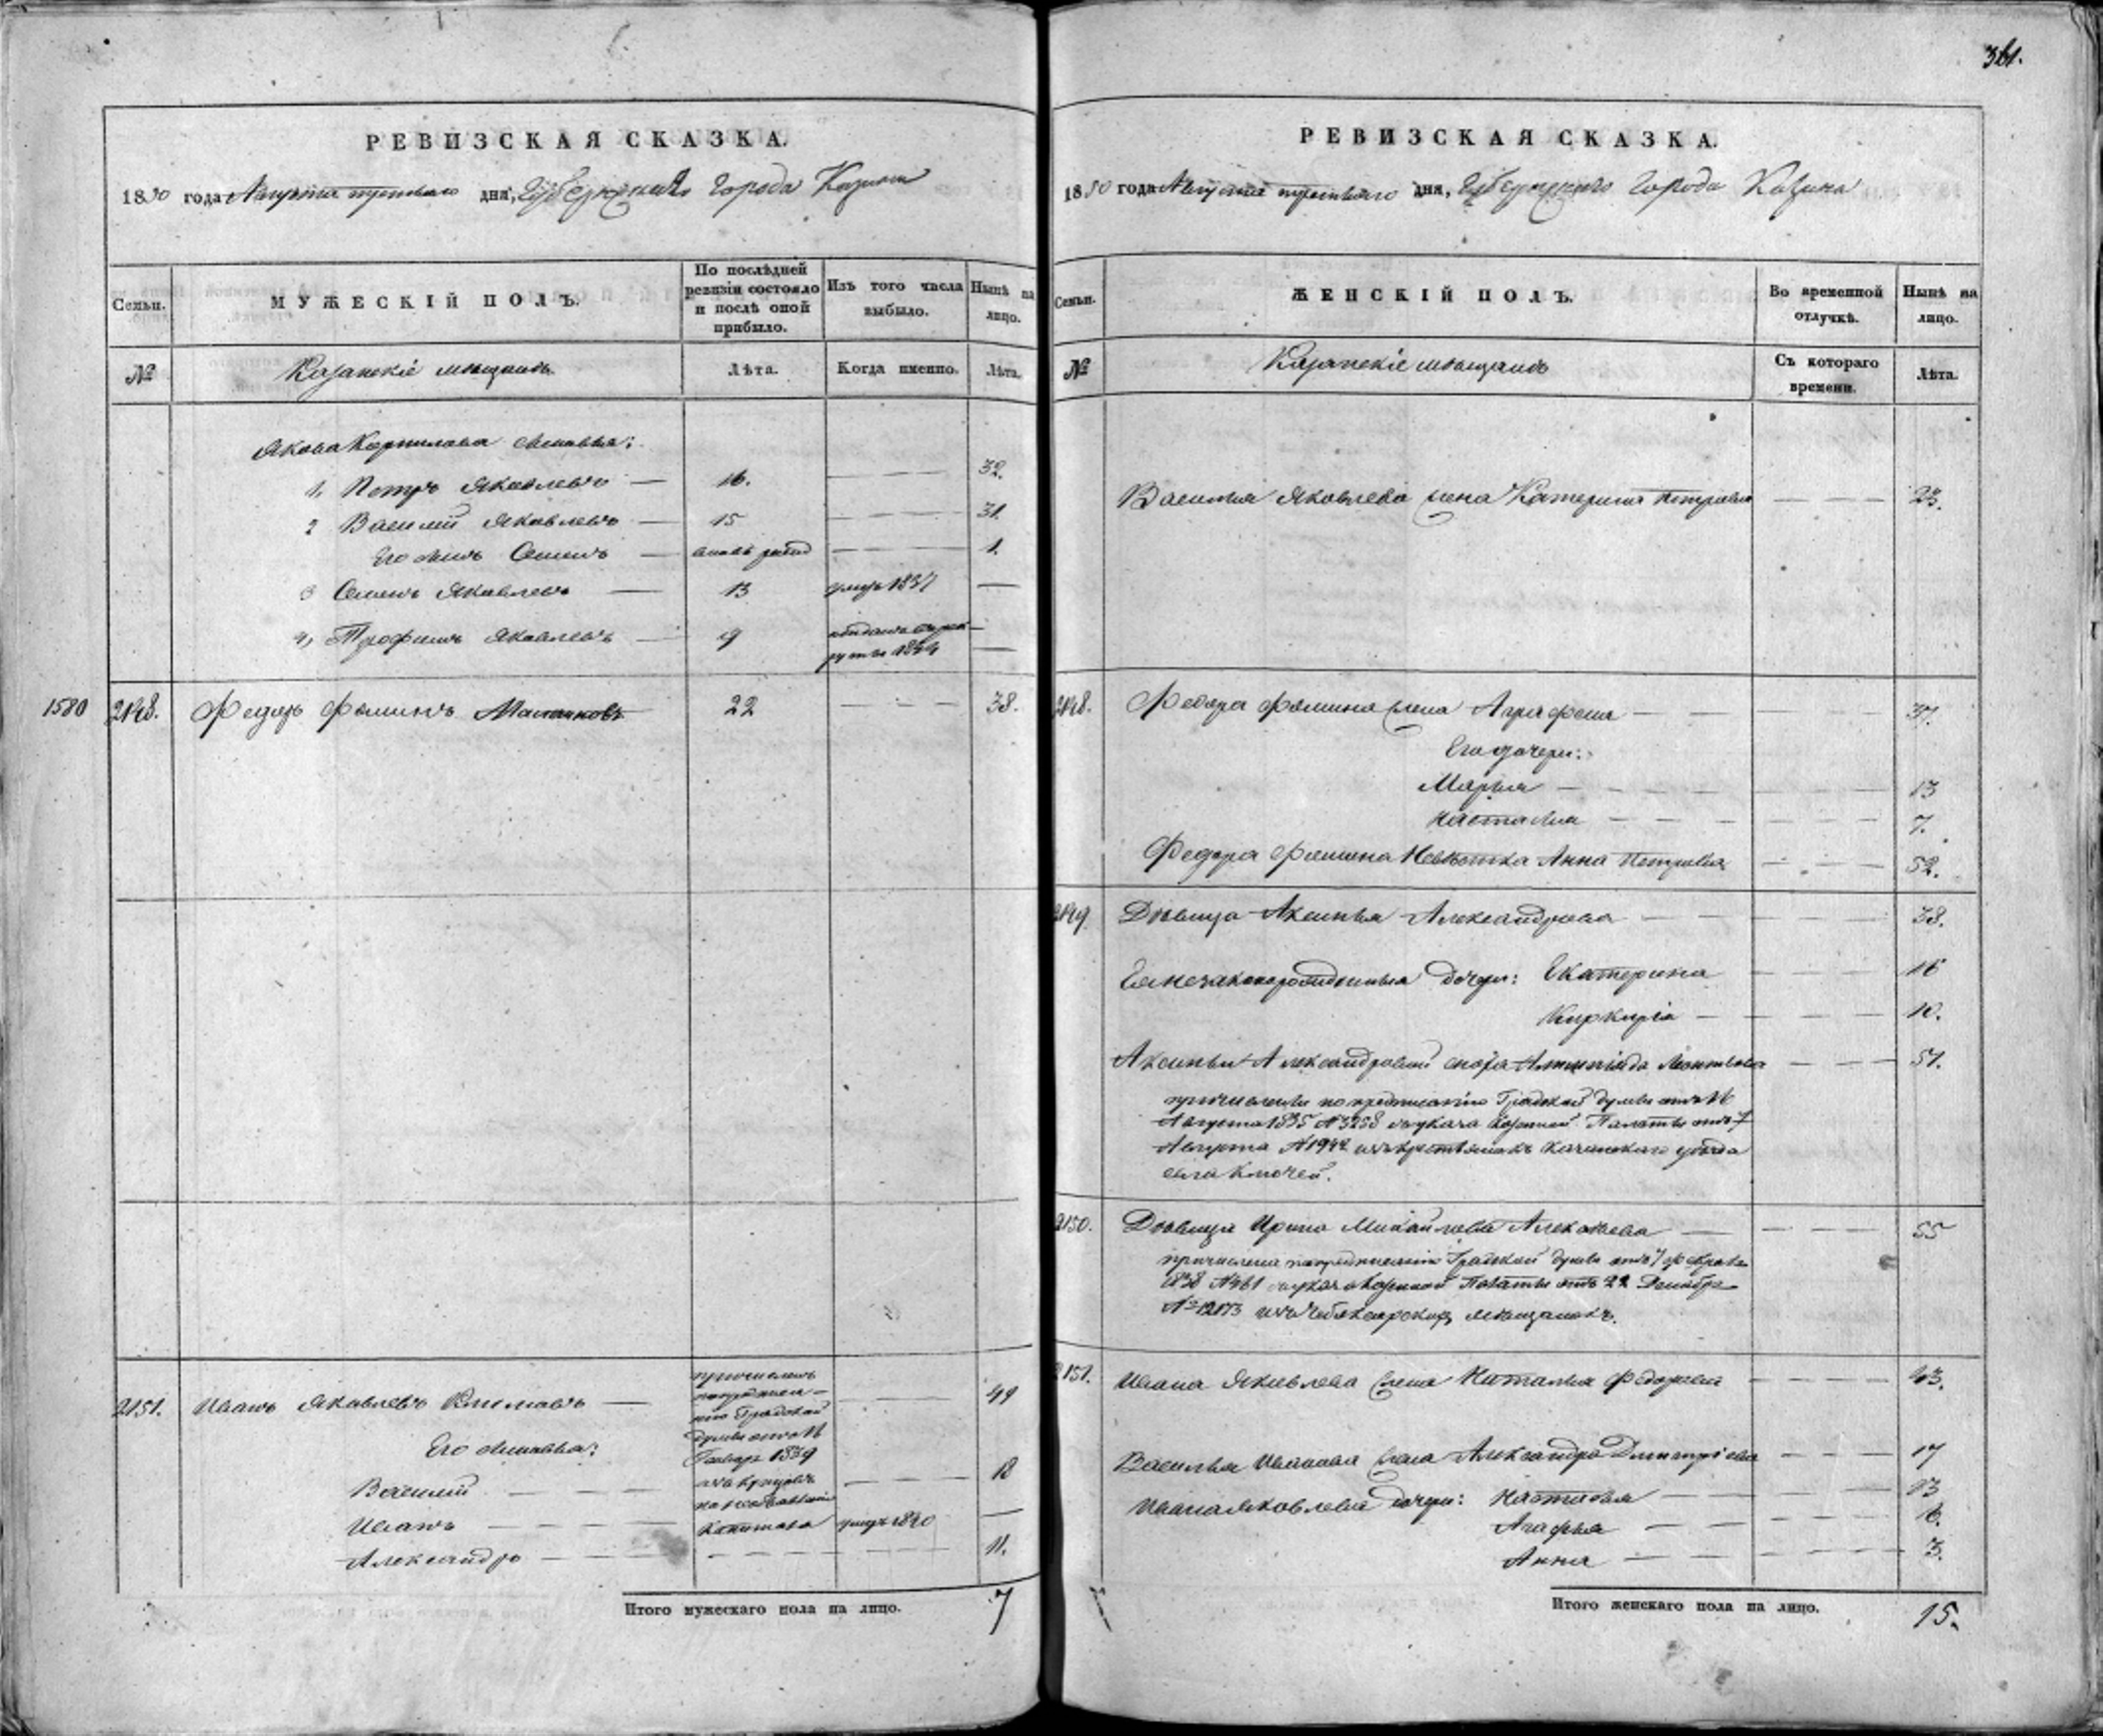 361.
РЕВИЗСКАЯ СКАЗКА.
1850 года Августа третьяго дня, Губернскаго города Казани
Семьи. МУЖЕСКІЙ ПОЛЪ. По послѣдней ревизіи состояло и послѣ оной прибыло. Изъ того числа выбыло. Нынѣ на лицо.
№ Казанскіе мѣщане Лѣта. Когда именно. Лѣта.
Якова Корнилова сыновья:
1, Петръ Яковлевъ — 16. — — — 32.
2 Василій Яковлевъ — 15 — — — 31.
Его сынъ Семенъ — вновь рожд — — — 1.
3 Семенъ Яковлевъ — 13 умеръ 1837 —
4, Трофимъ Яковлевъ — 9 отданъ въ рек
руты 1844 —
1580 2148. Федоръ Фоминъ 22 — — — 38.
2151. Иванъ Яковлевъ — причисленъ
по предписа-
нію Градской
думы отъ 16
Генваря 1839
— — — 49
Его сыновья:
Василій — — — — — — 18
Иванъ — — — умеръ 1840 —
Александръ — — — — — — 11.
Итого мужескаго пола на лицо. 7
РЕВИЗСКАЯ СКАЗКА.
1850 года Августа третьяго дня, Губернскаго города Казани
Семьи. ЖЕНСКІЙ ПОЛЪ. Во временной отлучкѣ. Нынѣ на лицо.
№ Казанскіе мѣщане Съ котораго времени. Лѣта.
Василья Яковлева жена Катерина Петрова — — — 23.
2148. Федора Фомина жена Аграфена — — — 37.
Его дочери:
Марья — — — 13
Настасья — — — 7.
Федора Фомина невѣстка Анна Петрова — — — 52.
2149 Дѣвица Аксинья Александрова — — — 38.
Ея незаконорожденныя дочери: Екатерина — — — 16
— — — 10.
Аксиньи Александровой Леонтьева — — — 51.
причислены по предписанію Градской думы отъ 16
Августа 1835 №3258 и указа Казенной Палаты отъ 7
Августа №1942 изъ крестьянокъ Казанскаго уѣзда
села Ключей.
2150. Дѣвица Ирина Михайлова — — — 55
причислена по предписанію Градской думы отъ 7 февраля
1838 №461 и указа Казенной Палаты отъ 22 Декабря
№12173 изъ Чебоксарскихъ мѣщанокъ.
2151. Ивана Яковлева жена Наталья Федорова — — — 43.
Василья Иванова жена Александра Дмитріева — — — 17
Ивана Яковлева дочери: Настасья — — — 13
Агафья — — — 6.
Анна — — — 3.
Итого женскаго пола на лицо. 15.